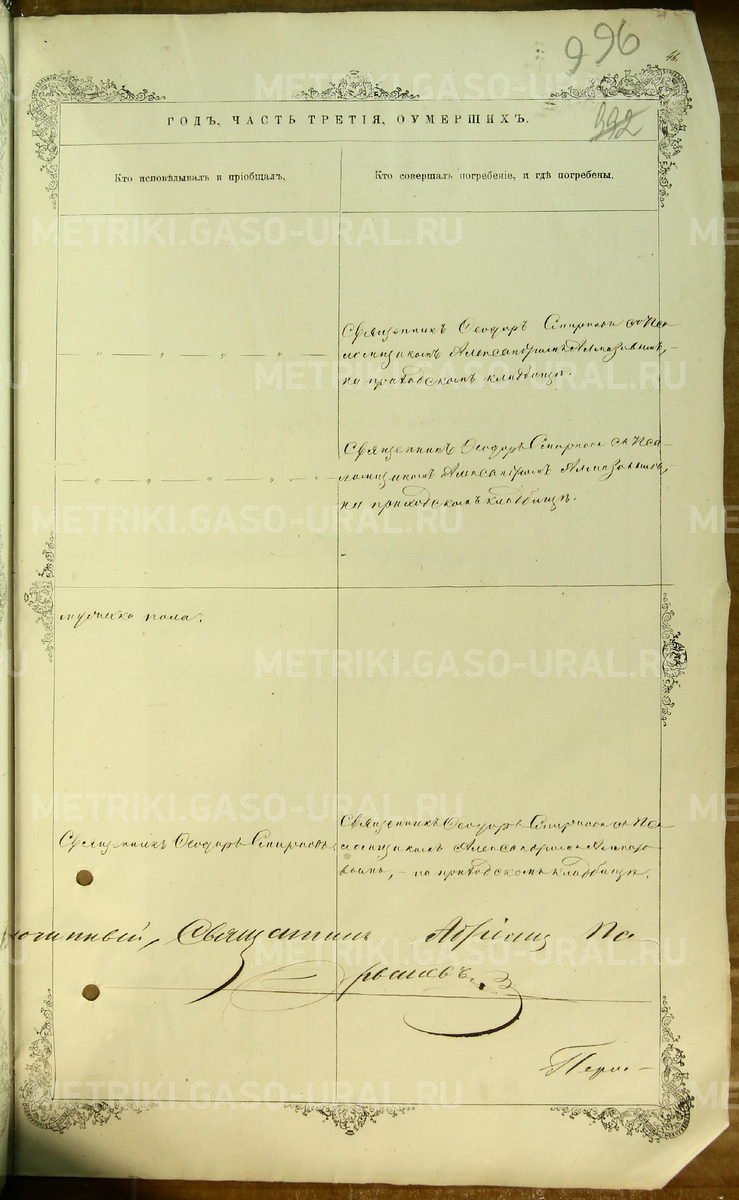 996
46.
392
ГОДЪ, ЧАСТЬ ТРЕТІЯ, ОУМЕРШИХЪ.
Кто исповѣдывалъ и пріобщалъ.
Кто совершалъ погребеніе, и гдѣ погребены.
Священникъ Ѳеодоръ Смирновъ съ Пса-
ломщикомъ Александромъ Алмазовымъ, -
на приходскомъ кладбищѣ.
Священникъ Ѳеодоръ Смирновъ съ Пса-
ломщикомъ Александромъ Алмазовымъ,
на приходскомъ кладбищѣ.
мужеска пола.
Священникъ Ѳеодоръ Смирновъ съ Пса
Священникъ Ѳеодоръ Смирновъ.
ломщикомъ Александромъ Алмазо
вымъ, - на приходскомъ кладбищѣ.
Священникъ
METRIKI.GASO-URAL.RU